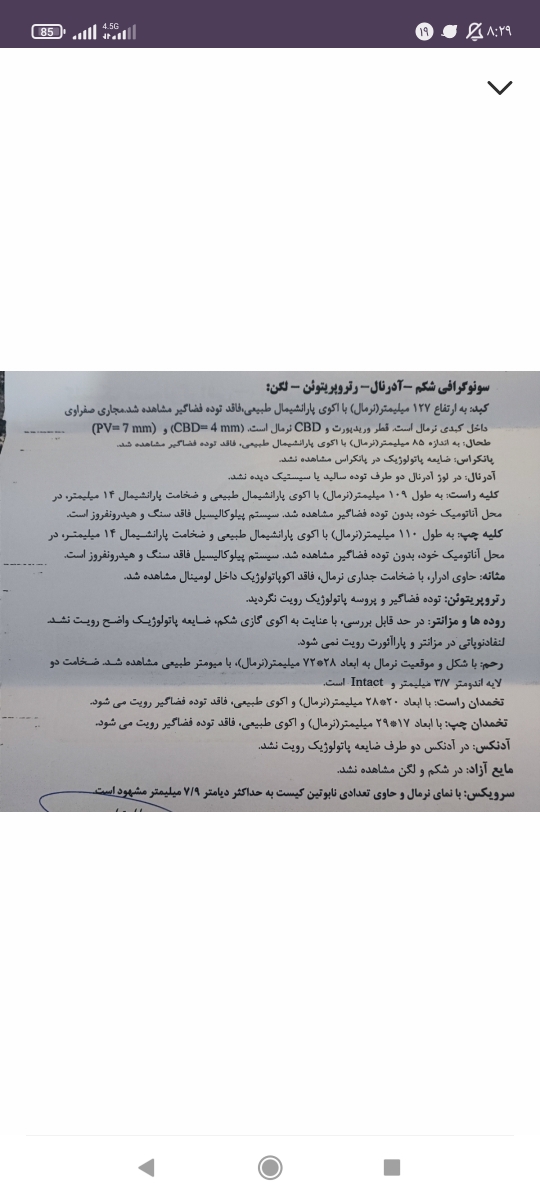 85 4.5G ۱۹ ۸:۲۹
سونوگرافی شکم -آدرنال- رتروپریتوئن - لگن:
کبد: به ارتفاع ۱۲۷ میلیمتر(نرمال) با اکوی پارانشیمال طبیعی،فاقد توده فضاگیر مشاهده شد.مجاری صفراوی
داخل کبدی نرمال است. قطر وریدپورت و CBD نرمال است. (CBD= 4 mm) و (PV= 7 mm)
طحال: به اندازه ۸۵ میلیمتر(نرمال) با اکوی پارانشیمال طبیعی، فاقد توده فضاگیر مشاهده شد.
پانکراس: ضایعه پاتولوژیک در پانکراس مشاهده نشد.
آدرنال: در لوژ آدرنال دو طرف توده سالید یا سیستیک دیده نشد.
کلیه راست: به طول ۱۰۹ میلیمتر(نرمال) با اکوی پارانشیمال طبیعی و ضخامت پارانشیمال ۱۴ میلیمتر، در
محل آناتومیک خود، بدون توده فضاگیر مشاهده شد. سیستم پیلوکالیسیل فاقد سنگ و هیدرونفروز است.
کلیه چپ: به طول ۱۱۰ میلیمتر(نرمال) با اکوی پارانشیمال طبیعی و ضخامت پارانشیمال ۱۴ میلیمتر، در
محل آناتومیک خود، بدون توده فضاگیر مشاهده شد. سیستم پیلوکالیسیل فاقد سنگ و هیدرونفروز است.
مثانه: حاوی ادرار، با ضخامت جداری نرمال، فاقد اکوپاتولوژیک داخل لومینال مشاهده شد.
رتروپریتوئن: توده فضاگیر و پروسه پاتولوژیک رویت نگردید.
روده ها و مزانتر: در حد قابل بررسی، با عنایت به اکوی گازی شکم، ضایعه پاتولوژیک واضح رویت نشد.
لنفادنوپاتی در مزانتر و پاراآئورت رویت نمی شود.
رحم: با شکل و موقعیت نرمال به ابعاد ۲۸*۷۲ میلیمتر(نرمال)، با میومتر طبیعی مشاهده شد. ضخامت دو
لایه اندومتر ۳/۷ میلیمتر و Intact است.
تخمدان راست: با ابعاد ۲۰*۲۸ میلیمتر(نرمال) و اکوی طبیعی، فاقد توده فضاگیر رویت می شود.
تخمدان چپ: با ابعاد ۱۷*۲۹ میلیمتر(نرمال) و اکوی طبیعی، فاقد توده فضاگیر رویت می شود.
آدنکس: در آدنکس دو طرف ضایعه پاتولوژیک رویت نشد.
مایع آزاد: در شکم و لگن مشاهده نشد.
سرویکس: با نمای نرمال و حاوی تعدادی نابوتین کیست به حداکثر دیامتر ۷/۹ میلیمتر مشهود است